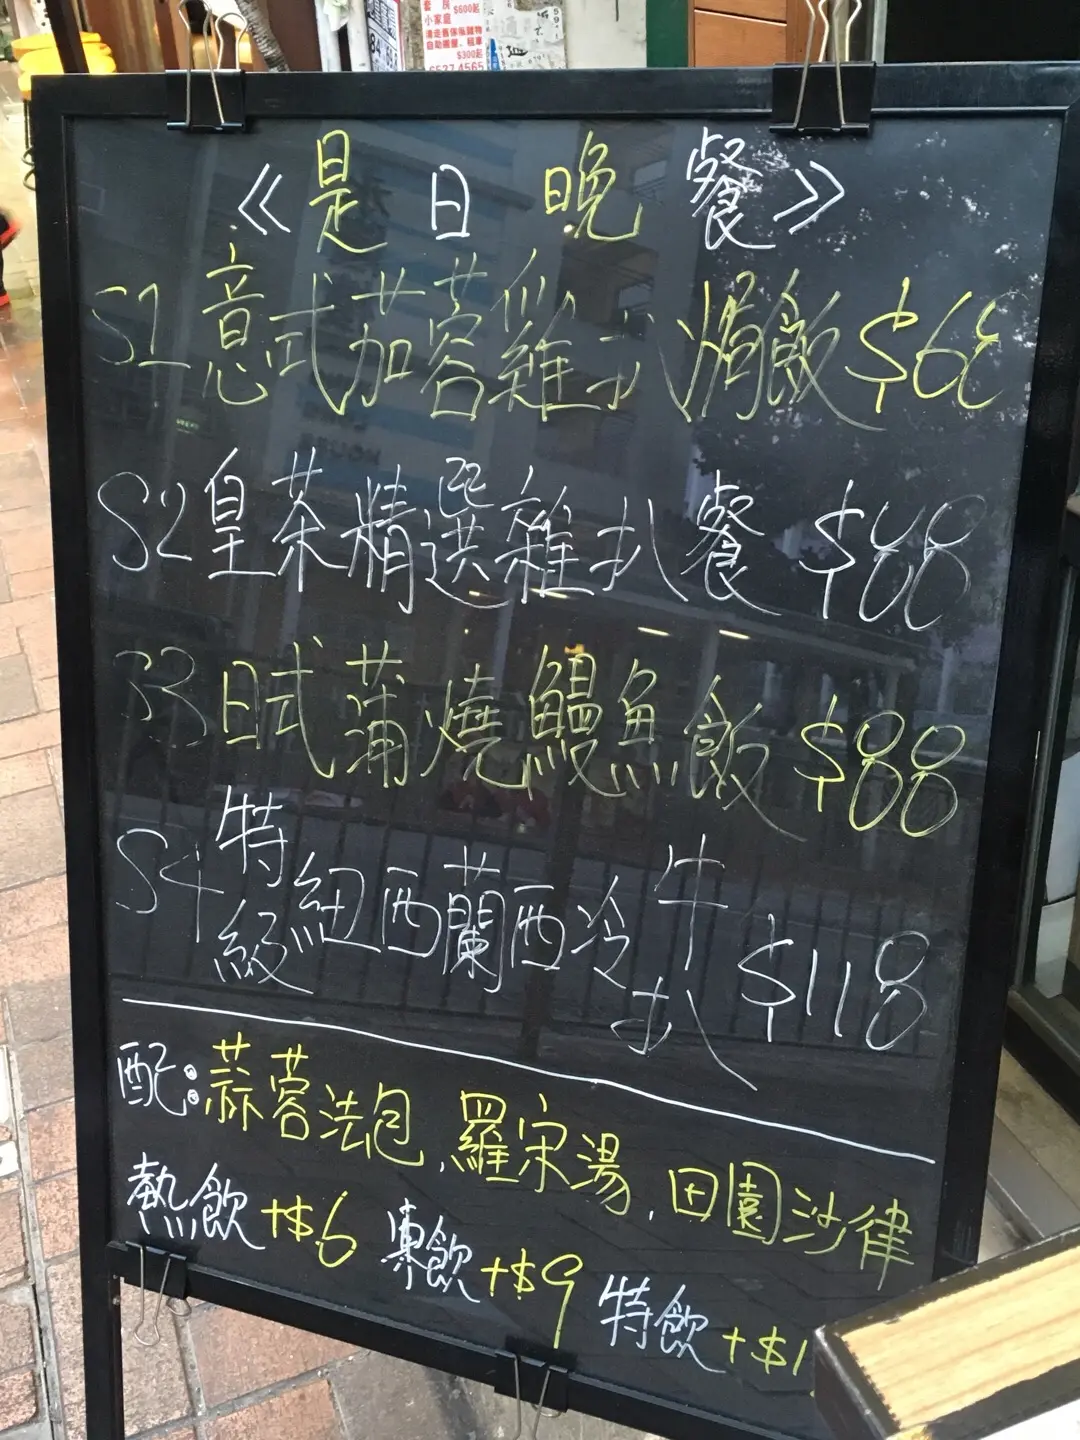 套房 $600起
小家庭
$300起
6527 4565
《是日晚餐》
S1 意式茄蓉雞扒焗飯 $68
S2 皇茶精選雜扒餐 $88
S3 日式蒲燒鰻魚飯 $88
S4 特級紐西蘭西冷牛扒 $118
配:蒜蓉法包,羅宋湯,田園沙律
熱飲+$6 凍飲+$9 特飲+$1